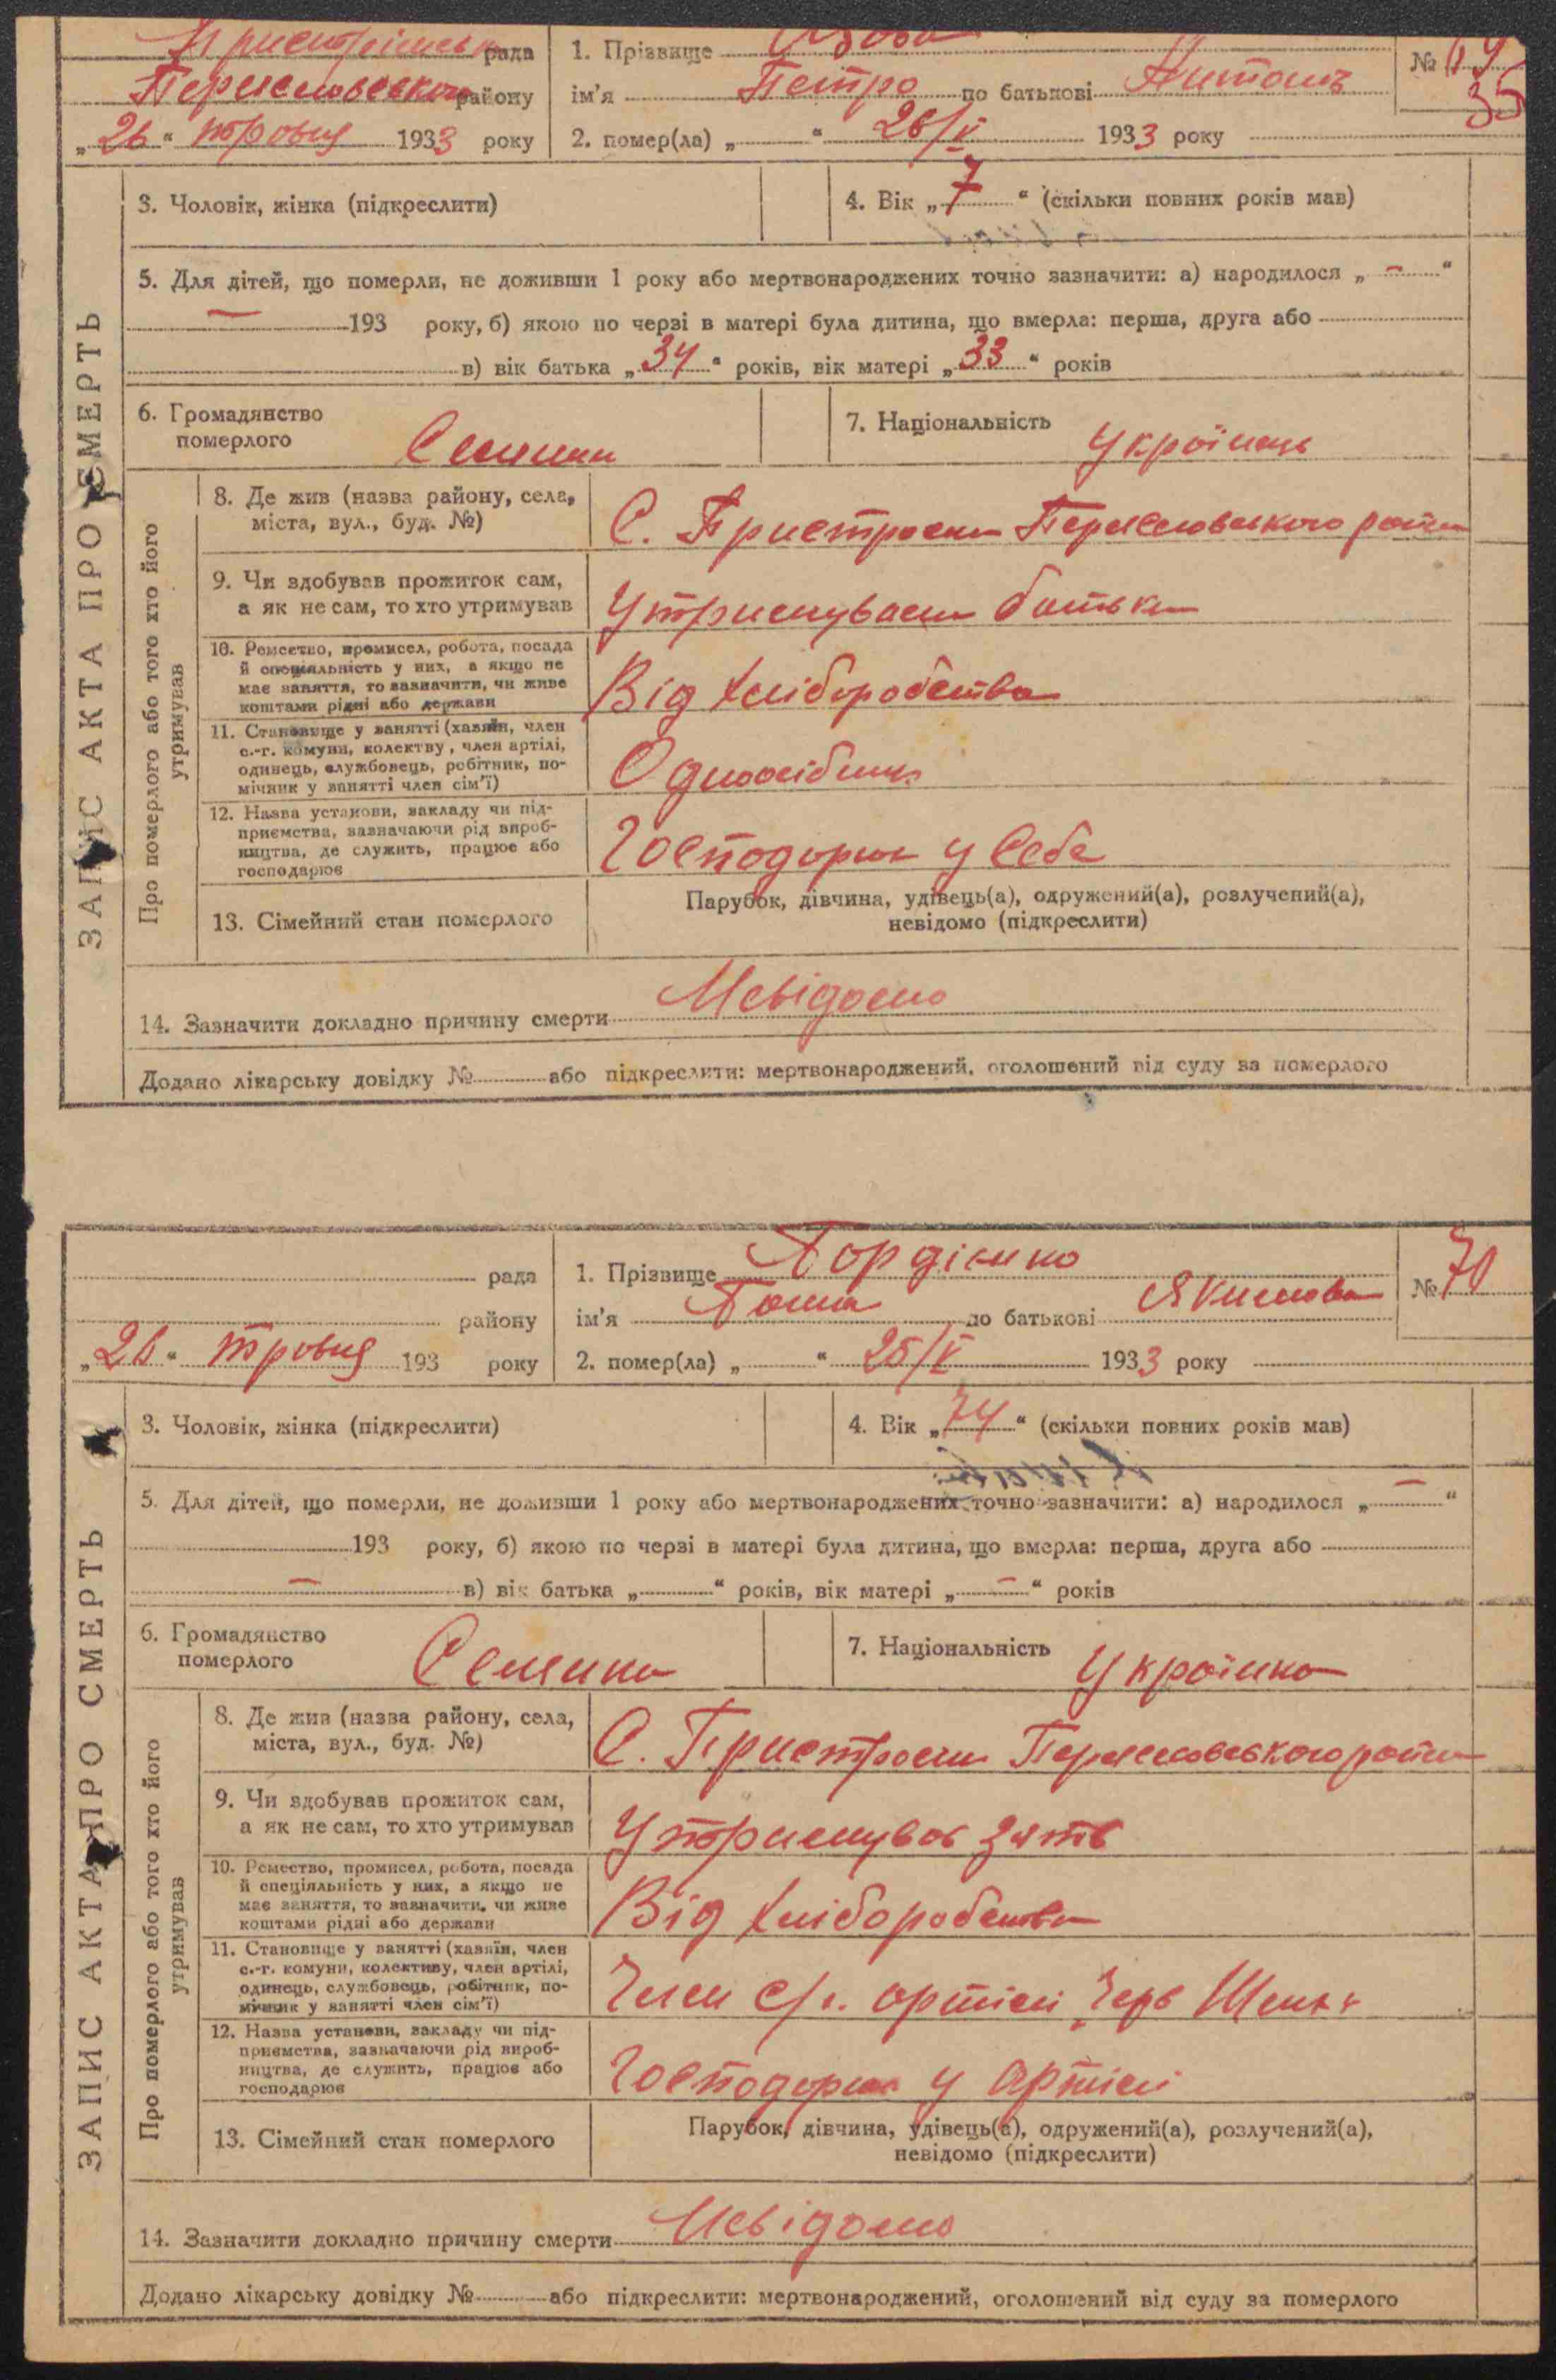 рада
1. Прізвище
№ 69
35
Переяславського району
ім'я Петро по батькові
„26“ травня 1933 року
2. помер(ла) „ “ 26/V 1933 року
ЗАПИС АКТА ПРО СМЕРТЬ
3. Чоловік, жінка (підкреслити)
4. Вік „7“ (скільки повних років мав)
5. Для дітей, що померли, не доживши 1 року або мертвонароджених точно зазначити: а) народилося „ — “
— 193 року, б) якою по черзі в матері була дитина, що вмерла: перша, друга або
в) вік батька „34“ років, вік матері „33“ років
6. Громадянство
померлого
7. Національність Українець
Про померлого або того хто його
утримував
8. Де жив (назва району, села,
міста, вул., буд. №)
С. Пристроми Переяславського район
9. Чи здобував прожиток сам,
а як не сам, то хто утримував
Утримували батьки
10. Ремество, промисел, робота, посада
й спеціяльність у них, а якщо не
має заняття, то зазначити, чи живе
коштами рідні або держави
Від хліборобства
11. Становище у занятті (хазяїн, член
с.-г. комуни, колективу, член артілі,
одинець, службовець, робітник, по-
мічник у занятті член сім'ї)
Одноосібник
12. Назва установи, закладу чи під-
приємства, зазначаючи рід вироб-
ництва, де служить, працює або
господарює
Господарює у себе
13. Сімейний стан померлого
Парубок, дівчина, удівець(а), одружений(а), розлучений(а),
невідомо (підкреслити)
14. Зазначити докладно причину смерти Невідомо
Додано лікарську довідку № або підкреслити: мертвонароджений, оголошений від суду за померлого
рада
1. Прізвище Гордієнко
№ 70
району
ім'я по батькові Якимова
„26“ травня 193 року
2. помер(ла) „ “ 25/V 1933 року
ЗАПИС АКТА ПРО СМЕРТЬ
3. Чоловік, жінка (підкреслити)
4. Вік „74“ (скільки повних років мав)
5. Для дітей, що померли, не доживши 1 року або мертвонароджених точно зазначити: а) народилося „ — “
193 року, б) якою по черзі в матері була дитина, що вмерла: перша, друга або
— в) вік батька „ “ років, вік матері „ — “ років
6. Громадянство
померлого
7. Національність Українка
Про померлого або того хто його
утримував
8. Де жив (назва району, села,
міста, вул., буд. №)
С. Пристроми Переяславського район
9. Чи здобував прожиток сам,
а як не сам, то хто утримував
Утримував зять
10. Ремество, промисел, робота, посада
й спеціяльність у них, а якщо не
має заняття, то зазначити, чи живе
коштами рідні або держави
Від хліборобства
11. Становище у занятті (хазяїн, член
с.-г. комуни, колективу, член артілі,
одинець, службовець, робітник, по-
мічник у занятті член сім'ї)
Член с/г. артілі Черв
12. Назва установи, закладу чи під-
приємства, зазначаючи рід вироб-
ництва, де служить, працює або
господарює
Господарює у артілі
13. Сімейний стан померлого
Парубок, дівчина, удівець(а), одружений(а), розлучений(а),
невідомо (підкреслити)
14. Зазначити докладно причину смерти Невідомо
Додано лікарську довідку № або підкреслити: мертвонароджений, оголошений від суду за померлого